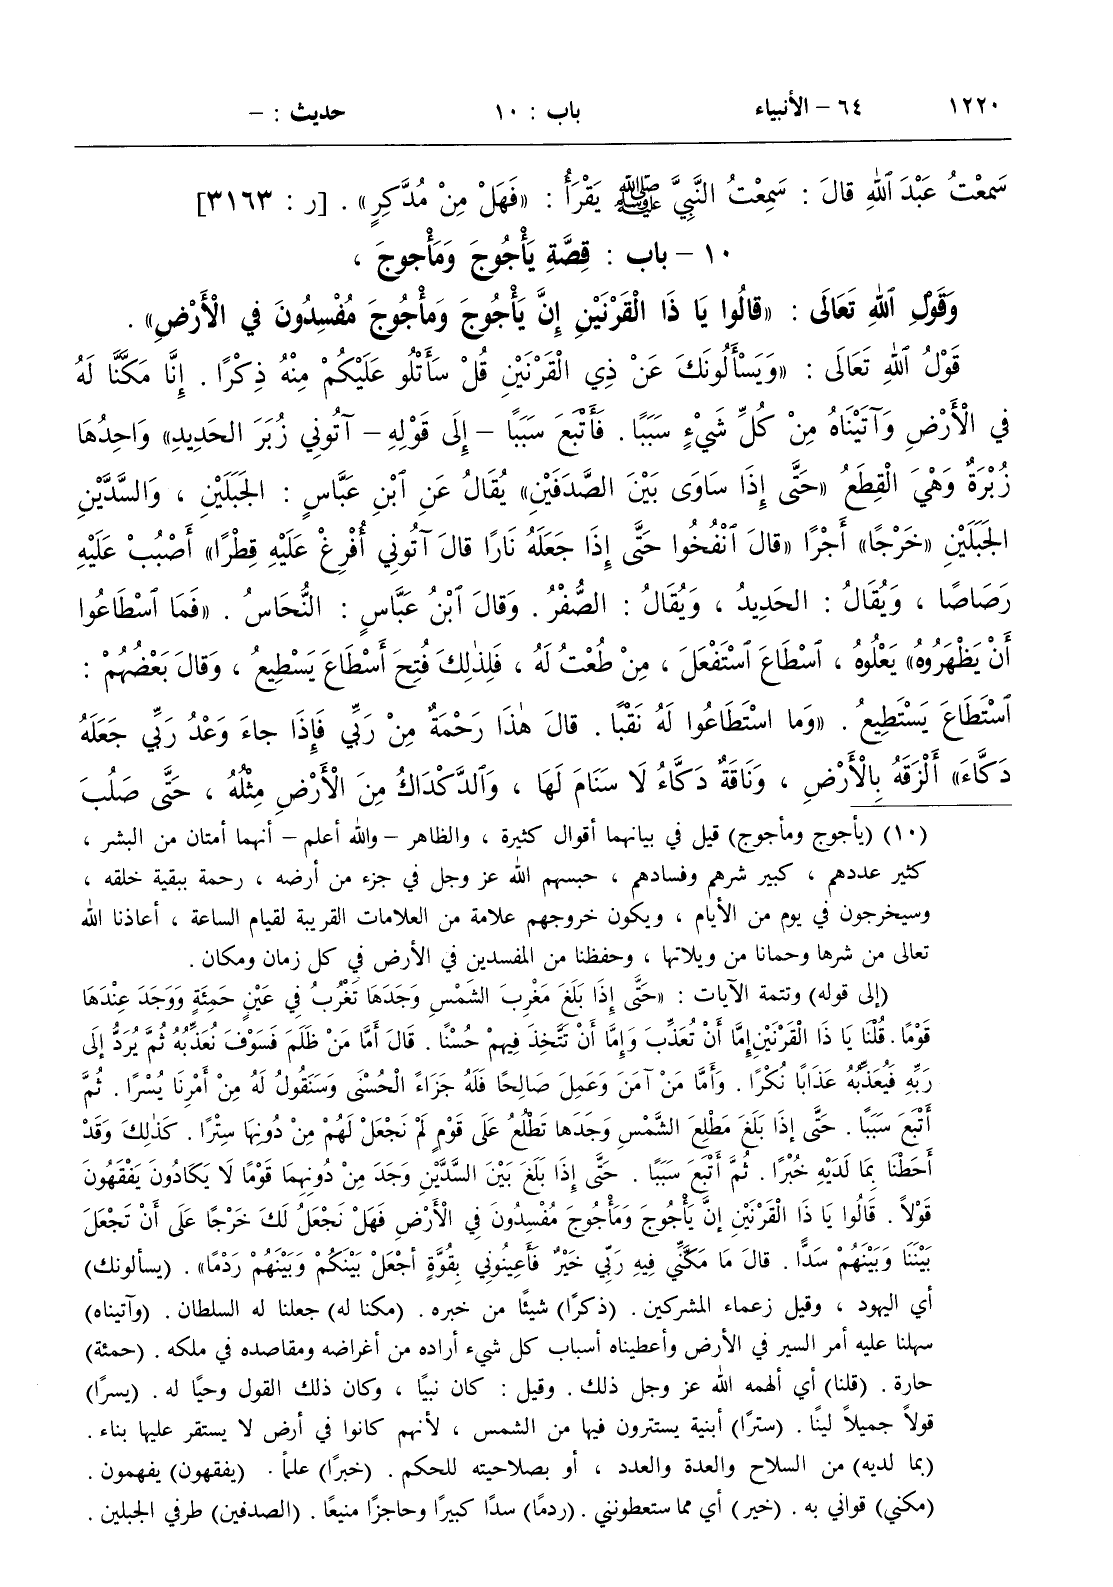 ١٢٢٠ ٦٤ – الأنبياء باب : ١٠ حديث : –
سَمِعْتُ عَبْدَ ٱللهِ قالَ : سَمِعْتُ النَّبِيَّ ﷺ يَقْرَأُ : «فَهَلْ مِنْ مُدَّكِرٍ» . [ر : ٣١٦٣]
١٠ – باب : قِصَّةِ يَأْجُوجَ وَمَأْجوجَ ،
وَقَوْلِ ٱللهِ تَعَالَى : «قالُوا يَا ذَا الْقَرْنَيْنِ إِنَّ يَأْجُوجَ وَمَأْجُوجَ مُفْسِدُونَ في الْأَرْضِ» .
قَوْلُ ٱللهِ تَعَالَى : «وَيَسْأَلُونَكَ عَنْ ذِي الْقَرْنَيْنِ قُلْ سَأَتْلُو عَلَيْكُمْ مِنْهُ ذِكْرًا . إِنَّا مَكَّنَّا لَهُ
في الْأَرْضِ وَآتَيْنَاهُ مِنْ كُلِّ شَيْءٍ سَبَبًا . فَأَتْبَعَ سَبَبًا – إِلَى قَوْلِهِ – آتُونِي زُبَرَ الحَدِيدِ» وَاحِدُهَا
زُبْرَةٌ وَهْيَ الْقِطَعُ «حَتَّى إِذَا سَاوَى بَيْنَ الصَّدَفَيْنِ» يُقَالُ عَنِ ٱبْنِ عَبَّاسٍ : الجَبَلَيْنِ ، وَالسَّدَّيْنِ
الجَبَلَيْنِ «خَرْجًا» أَجْرًا «قالَ ٱنْفُخُوا حَتَّى إِذَا جَعَلَهُ نَارًا قالَ آتُونِي أُفْرِغْ عَلَيْهِ قِطْرًا» أَصْبُبْ عَلَيْهِ
رَصَاصًا ، وَيُقَالُ : الحَدِيدُ ، وَيُقَالُ : الصُّفْرُ . وَقالَ ٱبْنُ عَبَّاسٍ : النُّحَاسُ . «فَمَا ٱسْطَاعُوا
أَنْ يَظْهَرُوهُ» يَعْلُوهُ ، ٱسْطَاعَ ٱسْتَفْعَلَ ، مِنْ طُعْتُ لَهُ ، فَلِذٰلِكَ فُتِحَ أَسْطَاعَ يَسْطِيعُ ، وَقالَ بَعْضُهُمْ :
ٱسْتَطَاعَ يَسْتَطِيعُ . «وَما ٱسْتَطَاعُوا لَهُ نَقْبًا . قالَ هٰذَا رَحْمَةٌ مِنْ رَبِّي فَإِذَا جاءَ وَعْدُ رَبِّي جَعَلَهُ
دَكَّاءَ» أَلْزَقَهُ بِالْأَرْضِ ، وَنَاقَةٌ دَكَّاءُ لَا سَنَامَ لَهَا ، وَٱلدَّكْدَاكُ مِنَ الْأَرْضِ مِثْلُهُ ، حَتَّى صَلُبَ
(١٠) (يأجوج ومأجوج) قيل في بيانهما أقوال كثيرة ، والظاهر – والله أعلم – أنهما أمتان من البشر ،
كثير عددهم ، كبير شرهم وفسادهم ، حبسهم الله عز وجل في جزء من أرضه ، رحمة ببقية خلقه ،
وسيخرجون في يوم من الأيام ، ويكون خروجهم علامة من العلامات القريبة لقيام الساعة ، أعاذنا الله
تعالى من شرها وحمانا من ويلاتها ، وحفظنا من المفسدين في الأرض في كل زمان ومكان .
(إلى قوله) وتتمة الآيات : «حَتَّى إِذَا بَلَغَ مَغْرِبَ الشَّمْسِ وَجَدَهَا تَغْرُبُ فِي عَيْنٍ حَمِئَةٍ وَوَجَدَ عِنْدَهَا
قَوْمًا . قُلْنَا يَا ذَا الْقَرْنَيْنِ إِمَّا أَنْ تُعَذِّبَ وَإِمَّا أَنْ تَتَّخِذَ فِيهِمْ حُسْنًا . قَالَ أَمَّا مَنْ ظَلَمَ فَسَوْفَ نُعَذِّبُهُ ثُمَّ يُرَدُّ إِلَى
رَبِّهِ فَيُعَذِّبُهُ عَذَابًا نُكْرًا . وَأَمَّا مَنْ آمَنَ وَعَمِلَ صَالِحًا فَلَهُ جَزَاءً الْحُسْنَى وَسَنَقُولُ لَهُ مِنْ أَمْرِنَا يُسْرًا . ثُمَّ
أَتْبَعَ سَبَبًا . حَتَّى إِذَا بَلَغَ مَطْلِعَ الشَّمْسِ وَجَدَها تَطْلُعُ عَلَى قَوْمٍ لَمْ نَجْعَلْ لَهُمْ مِنْ دُونِهَا سِتْرًا . كَذٰلِكَ وَقَدْ
أَحَطْنَا بِمَا لَدَيْهِ خُبْرًا . ثُمَّ أَتْبَعَ سَبَبًا . حَتَّى إِذَا بَلَغَ بَيْنَ السَّدَّيْنِ وَجَدَ مِنْ دُونِهِمَا قَوْمًا لَا يَكَادُونَ يَفْقَهُونَ
قَوْلاً . قَالُوا يَا ذَا الْقَرْنَيْنِ إِنَّ يَأْجُوجَ وَمَأْجُوجَ مُفْسِدُونَ فِي الْأَرْضِ فَهَلْ نَجْعَلُ لَكَ خَرْجًا عَلَى أَنْ تَجْعَلَ
بَيْنَنَا وَبَيْنَهُمْ سَدًّا . قَالَ مَا مَكَّنِّي فِيهِ رَبِّي خَيْرٌ فَأَعِينُونِي بِقُوَّةٍ أَجْعَلْ بَيْنَكُمْ وَبَيْنَهُمْ رَدْمًا» . (يسألونك)
أي اليهود ، وقيل زعماء المشركين . (ذكرًا) شيئًا من خبره . (مكنا له) جعلنا له السلطان . (وآتيناه)
سهلنا عليه أمر السير في الأرض وأعطيناه أسباب كل شيء أراده من أغراضه ومقاصده في ملكه . (حمئة)
حارة . (قلنا) أي ألهمه الله عز وجل ذلك . وقيل : كان نبيًا ، وكان ذلك القول وحيًا له . (يسرًا)
قولاً جميلاً لينًا . (سترًا) أبنية يستترون فيها من الشمس ، لأنهم كانوا في أرض لا يستقر عليها بناء .
(بما لديه) من السلاح والعدة والعدد ، أو بصلاحيته للحكم . (خبرًا) علماً . (يفقهون) يفهمون .
(مكني) قواني به . (خير) أي مما ستعطونني . (ردمًا) سدًا كبيرًا وحاجزًا منيعًا . (الصدفين) طرفي الجبلين .